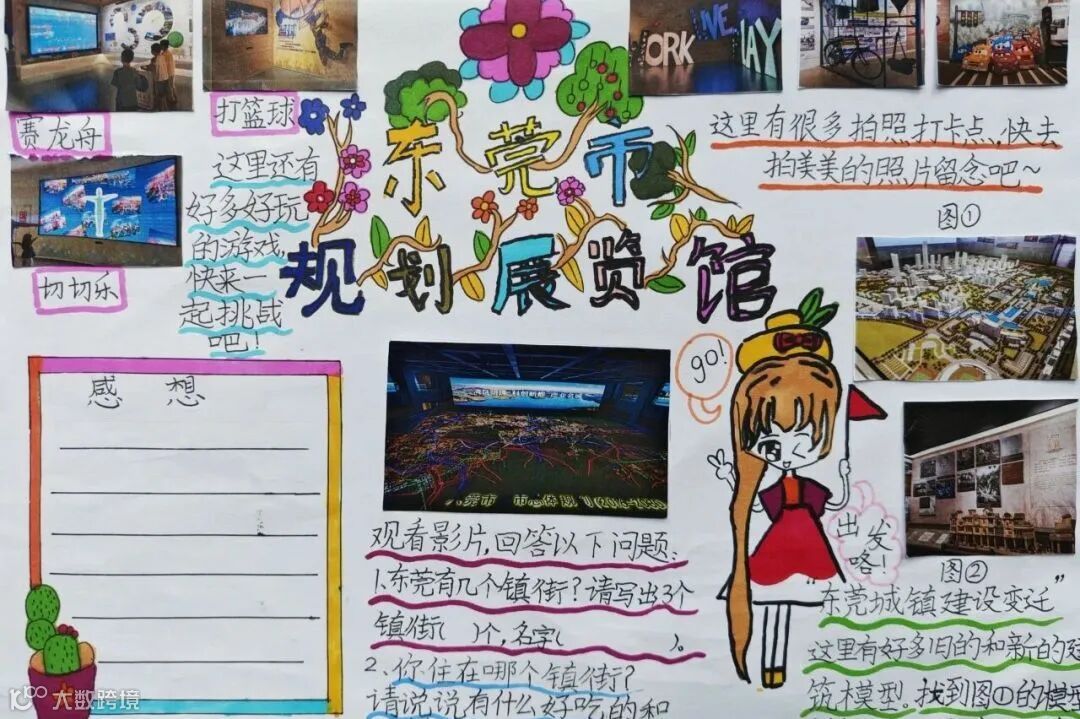 东莞市
规划展览馆
赛龙舟
打篮球
切切乐
这里还有
好多好玩
的游戏
快来一
起挑战
吧!
ORK
IVE
LAY
这里有很多拍照打卡点,快去
拍美美的照片留念吧~
图①
go!
感 想
观看影片,回答以下问题:
1.东莞有几个镇(街)?请写出3个
镇(街( )个,名字( )。
2、你住在哪个镇(街)?
请说说有什么好吃的和
出发
咯!
图②
东莞城镇建设变迁"
这里有好多旧的和新的建
筑模型。找到图①的模型
大数跨境